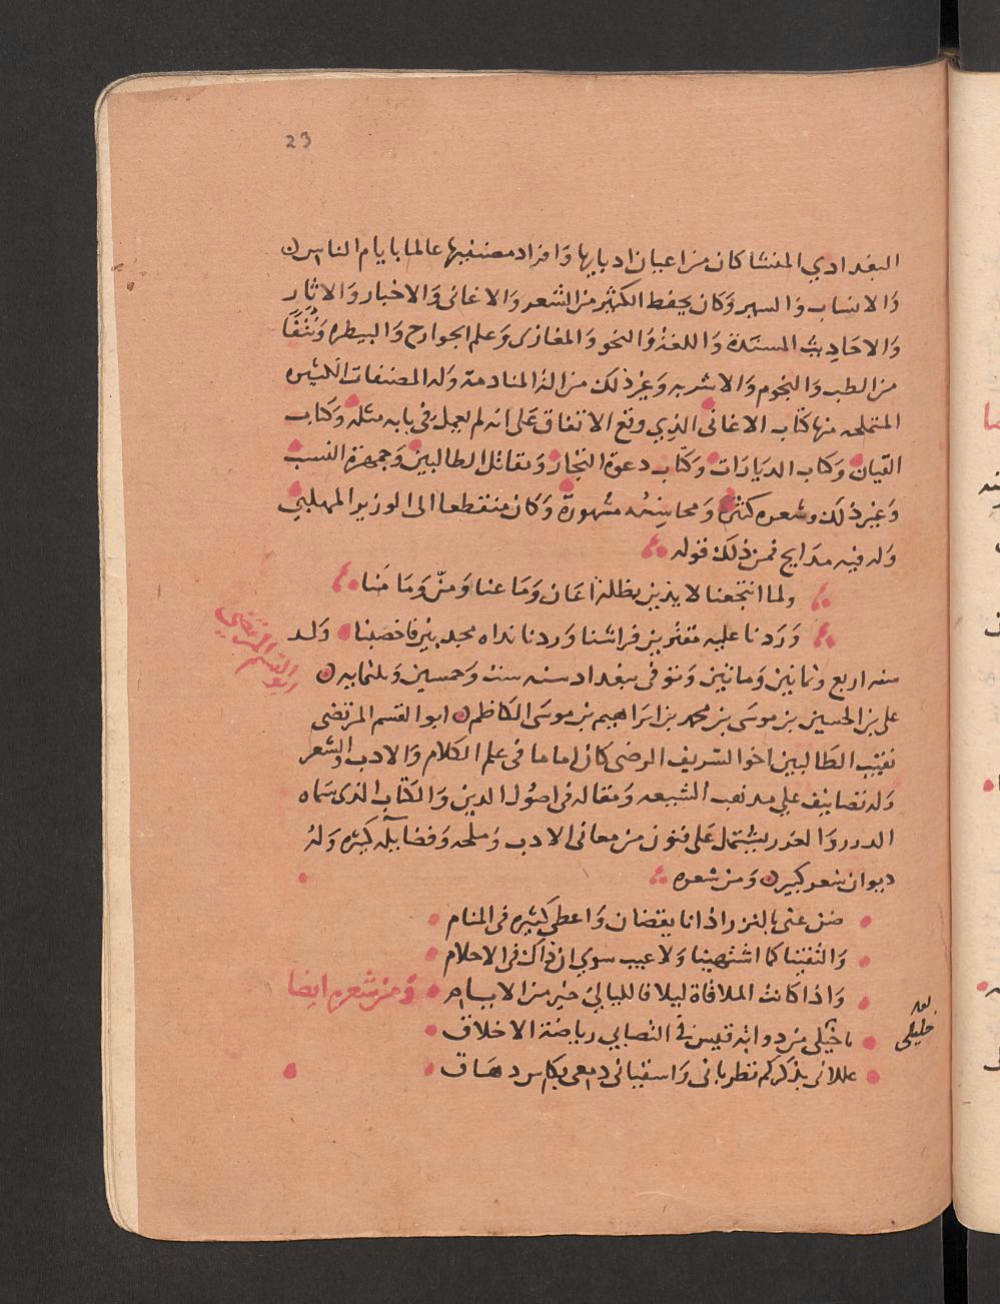 23
البغدادي المنشا كان من اعيان ادبايها وَافراد مصنفيها عالما بايام الناس
وَالانساب وَالسير وَكان يحفظ الكثير من الشعر وَالاغانى وَالاخبار وَالاثار
وَالاحَاديث المسندة وَاللغة وَالنحو وَالمغازى وَعلم الجوارح وَالبيطره وَنُتَفًا
من الطب وَالنجوم وَالاشربه وَغير ذلك من الة المنادمة وَله المصنفات الكثيره
المتملحه منها كتاب الاغانى الذِي وقع الاتفاق عَلى انه لم يعمل فى بابه مثله وَكتاب
القيان وَكتاب الديَارَات وَكتاب دعوة التجار وَمقاتل الطالبين وَجمهرة النسب
وَغير ذلك وشعره كثير وَمحاسِنُه مشهورة وَكان منقطعا الى الوزير المهلبي
وَله فيه مدَايح فمن ذلك قوله
ولما انتجعنا لايذين بظله اعَان وَمَا عنا وَمنّ وَمَا مَنا
وَرَدنا عليه مقترين فراشنا وَردنا نداه مجدبين فاخصبنا وَلد
سنه اربع وثمانين وَماتين وَتوفى ببغداد سنه ست وَخمسين وَثلثمايه
ابو القسم المرتضي
على بن الحسين بن موسَى بن محمد بن ابرَاهيم بن موسَى الكاظم ابو القسم المرتضى
نقيب الطَالبين اخو الشريف الرضى كان اماما فى علم الكلام وَالادب والشعر
وَله تصانيف علي مذهب الشيعه وَمقاله فى اصول الدين وَالكتاب الذى سماه
الدرر وَالغرر يشتمل عَلى فنون من معانى الادب وَملحه وَفضايله كثيره وَلهُ
ديوان شعر كبير وَمن شعره
ضن عنى بالنزر اذ انا يقضان وَاعطى كثيره فى المنام
وَالتقينا كما اشتهينا وَلا عيب سوي ان ذاك فى الاحلام
وَاذا كانت الملاقاة ليلا فالليالي خير من الايام وَمن شعره ايضا
يا خليلى من دوابة قيس فى التصابي رياضة الاخلاق
لعله
خليلى
عللانى بذكركم تطربانى وَاسقيانى دمعى بكاس دهَاق